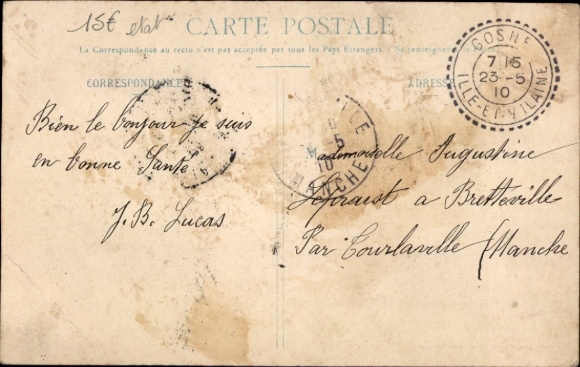 15€ état
CARTE POSTALE
La Correspondance au recto n'est pas acceptée par tous les Pays Étrangers (Se renseigner à la
CORRESPONDANCE
ADRESSE
GOSNÉ
7 15
23 -5
10
ILLE-ET-VILAINE
Bien le bonjour je suis
en bonne Santé
J. B. Lucas
ILLE
5
10
MANCHE
Mademoiselle Augustine
a Bretteville
Par Tourlaville (Manche